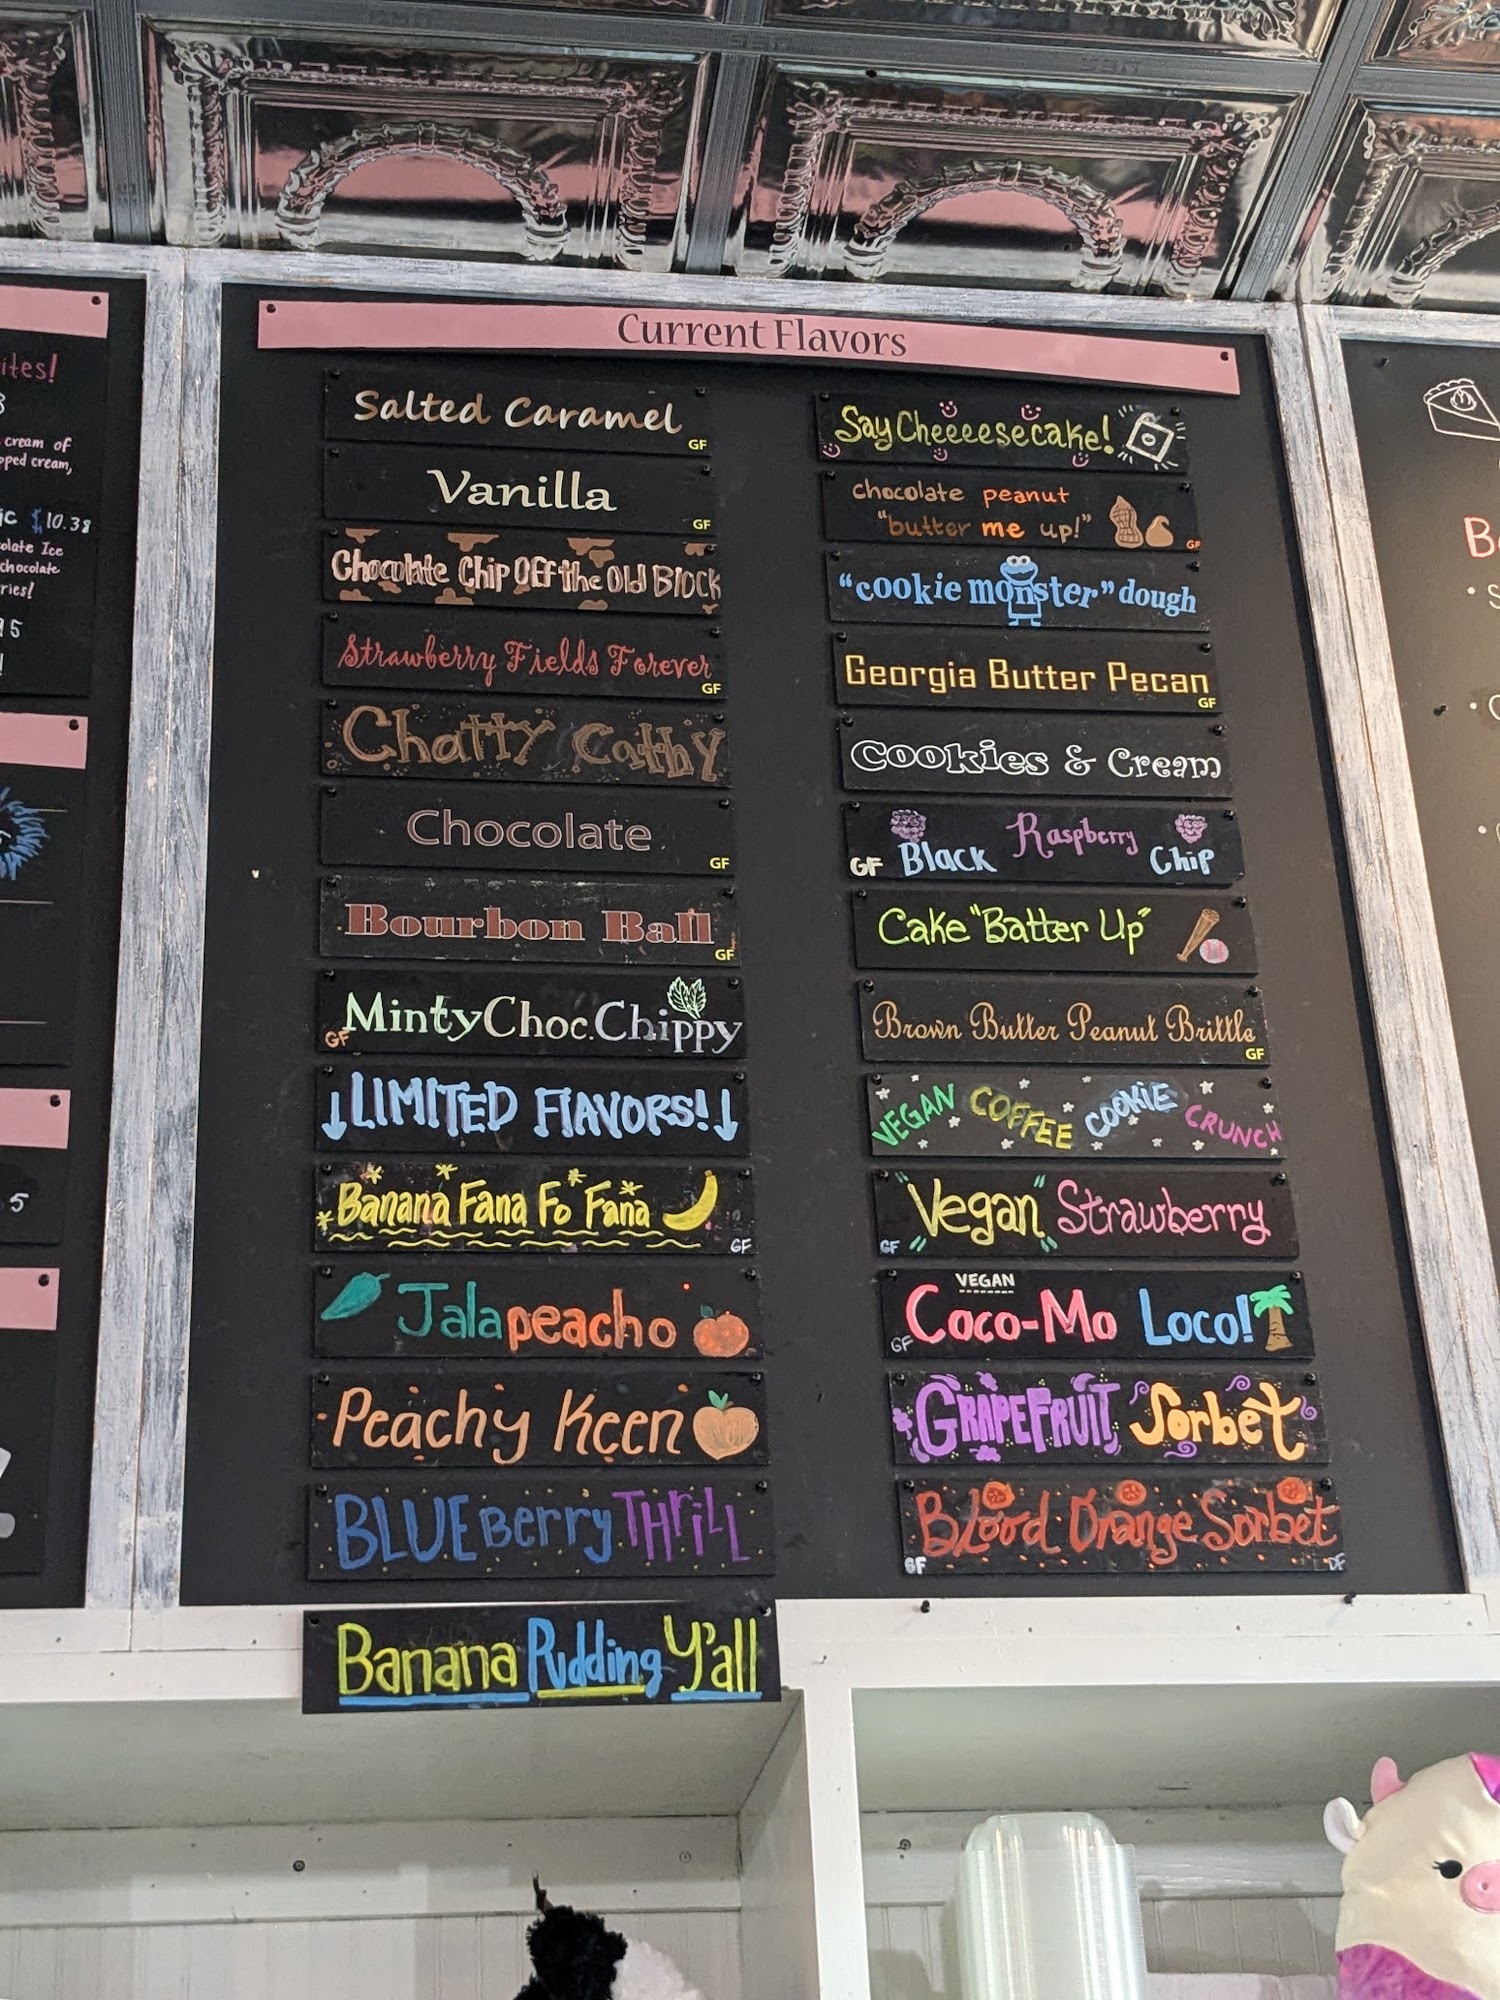 Current Flavors
Salted Caramel
GF
Vanilla
GF
Chocolate Chip Off the Old Block
Strawberry Fields Forever
GF
Chatty Cathy
Chocolate
GF
Bourbon Ball
GF
Minty Choc. Chippy
GF
↓LIMITED FLAVORS!↓
Banana Fana Fo Fana
GF
Jalapeacho
Peachy Keen
BLUEBerry THrILL
Banana Pudding Y'all
Say Cheeeesecake!
chocolate peanut
"butter me up!"
GF
"cookie monster" dough
Georgia Butter Pecan
GF
Cookies & Cream
GF Black Raspberry Chip
Cake "Batter Up"
Brown Butter Peanut Brittle
GF
VEGAN COFFEE COOKIE CRUNCH
"Vegan" Strawberry
GF
VEGAN
Coco-Mo Loco!
GF
GRAPEFRUIT Sorbet
Blood Orange Sorbet
GF
DF
ites!
cream of
pped cream,
$10.38
olate Ice
chocolate
ries!
5